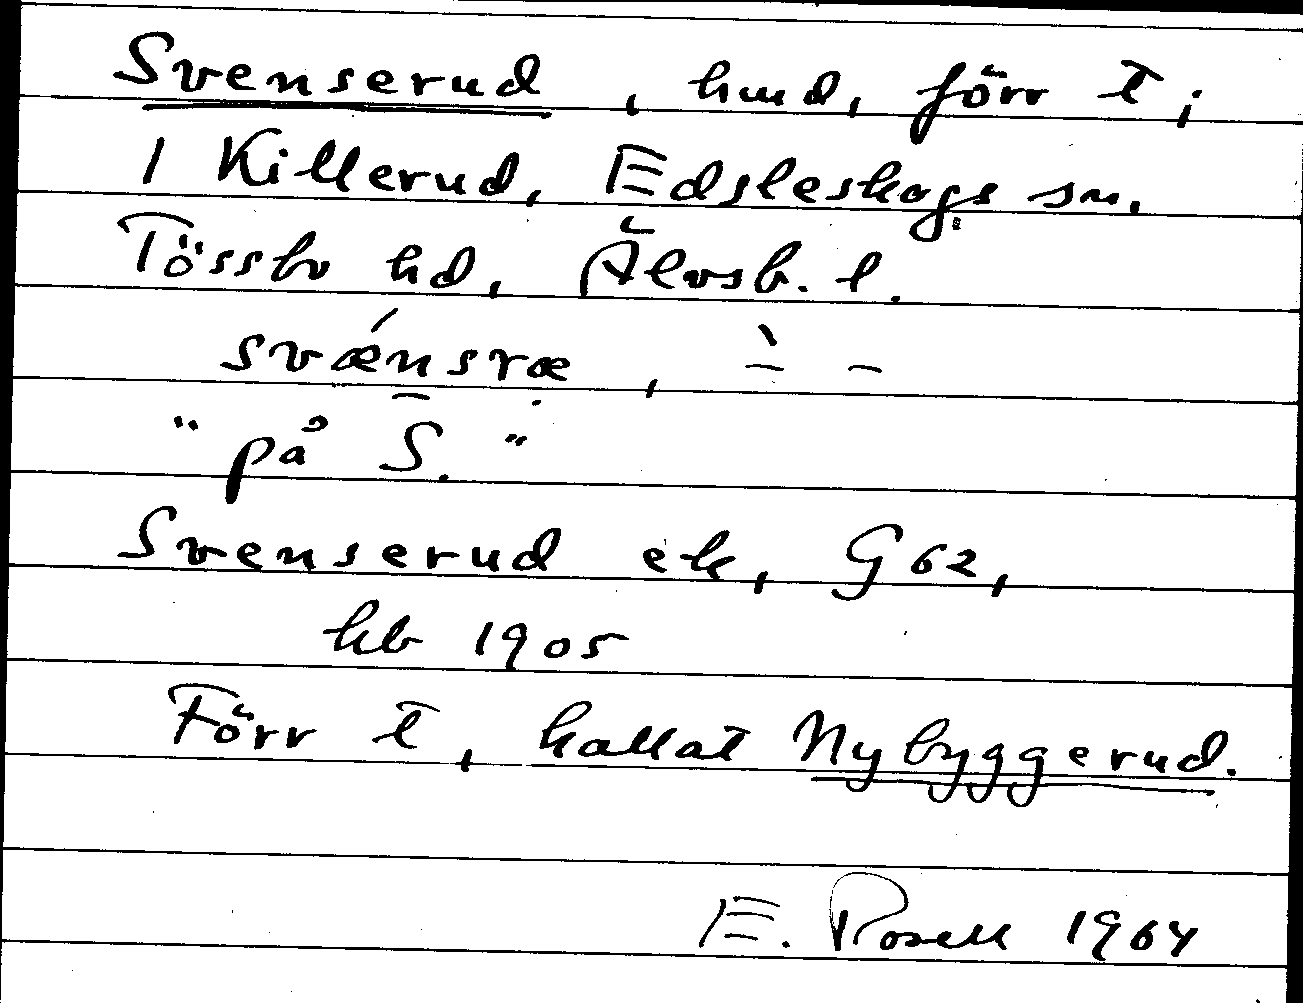 Svenserud, hmd, förr t,
1 Killerud, Edsleskogs sn.
Tössbo hd, Älvsb. l.
svǽnsræ, `– –
"på S."
Svenserud ek, G 62,
hb 1905
Förr t, kallat Nybyggerud.
E. Rosell 1964